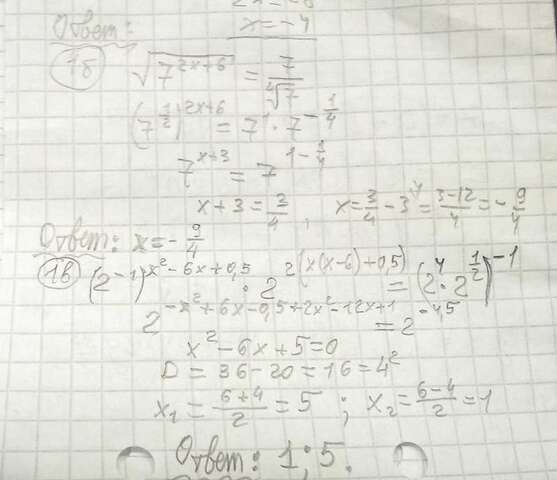 2x=-8
Ответ: x=-4
1б √(7^(2x+6)) = 7/⁴√7
(7^(1/2))^(2x+6) = 7¹·7^(-1/4)
7^(x+3) = 7^(1-1/4)
x+3=3/4, x=3/4-3=(3-12)/4=-9/4
Ответ: x=-9/4
1в (2^(-1))^(x²-6x+0,5) · 2^(2(x(x-6)+0,5)) = (2⁴·2^(1/2))^(-1)
2^(-x²+6x-0,5+2x²-12x+1) = 2^(-4,5)
x²-6x+5=0
D=36-20=16=4²
x₁=(6+4)/2=5; x₂=(6-4)/2=1
Ответ: 1; 5.